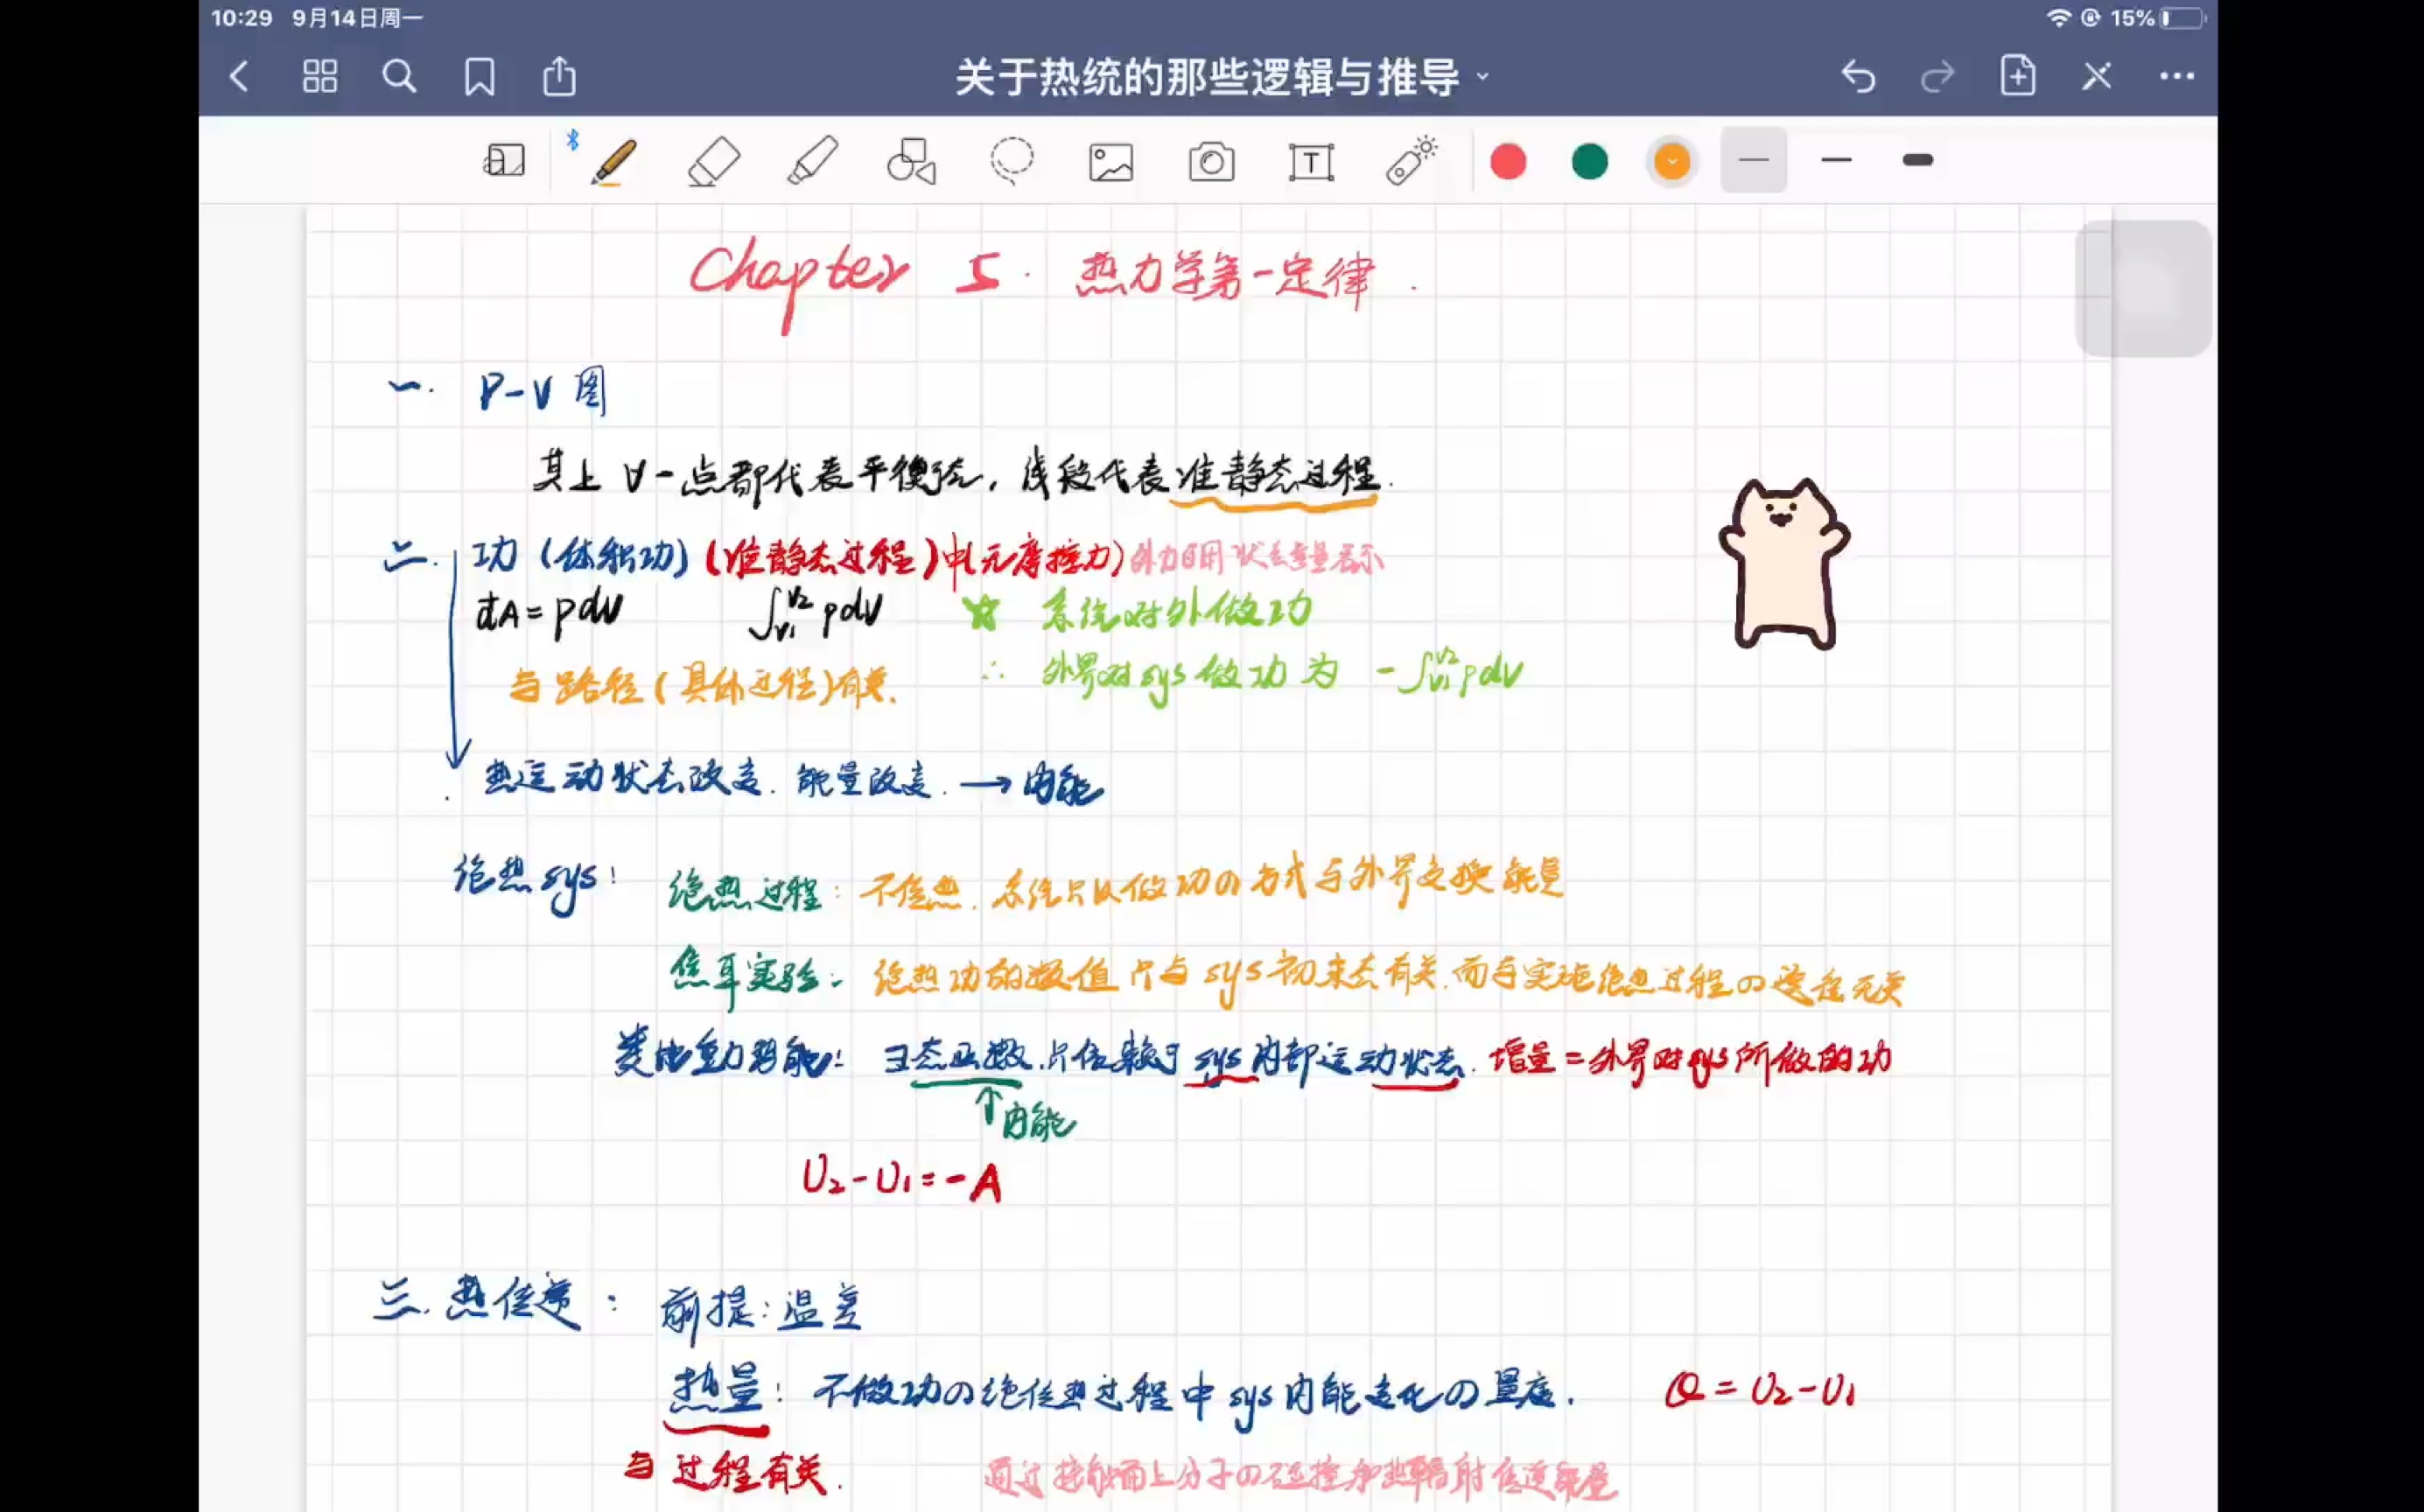 10:29 9月14日周一
15%
关于热统的那些逻辑与推导
T
Chapter 5. 热力学第一定律.
一. P-V 图
其上 ∀一点都代表平衡态, 线段代表准静态过程.
二. 功 (体积功) (准静态过程)中(无摩擦力) 外力可用状态参量表示
đA = pdV ∫_{V1}^{V2} pdV ☆ 系统对外做功
与路径(具体过程)有关. ∴ 外界对sys做功为 -∫_{V1}^{V2} pdV
热运动状态改变. 能量改变. → 内能
绝热sys: 绝热过程: 不传热. 系统只以做功の方式与外界交换能量
焦耳实验: 绝热功的数值只与sys初末态有关.而与实施绝热过程の途径无关
类比重力势能: 态函数.只依赖于sys内部运动状态. 增量=外界对sys所做的功
↑内能
U₂-U₁=-A
三. 热传递: 前提: 温差
热量: 不做功の纯传热过程中sys内能变化の量度. Q = U₂-U₁
与过程有关. 通过接触面上分子の碰撞和热辐射传递能量